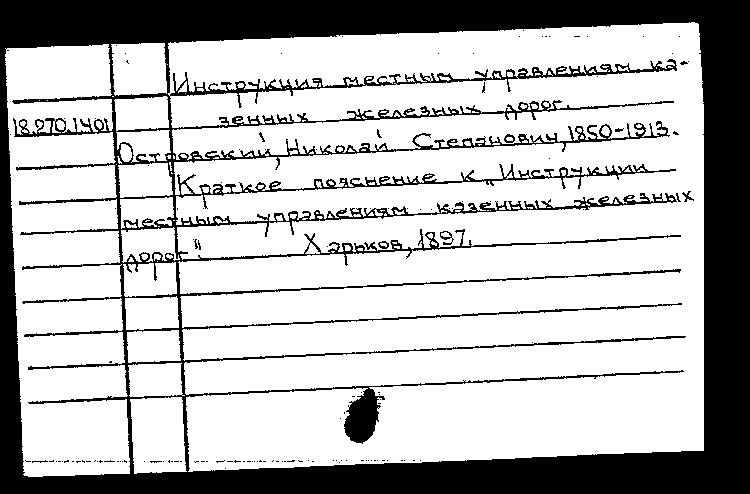 Инструкция местным управлениям ка-
зенных железных дорог.
18.270.1.401
Островский, Николай Степанович, 1850-1913.
Краткое пояснение к „Инструкции
местным управлениям казенных железных
дорог." Харьков, 1897.